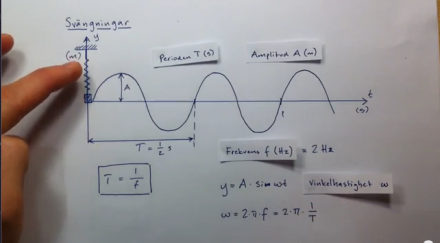 Svängningar
y
(m)
Perioden T (s)
Amplitud A (m)
A
t
(s)
1
T = 1/2 s
Frekvens f (Hz) = 2 Hz
T = 1/f
y = A · sin ωt
Vinkelhastighet ω
ω = 2·π·f = 2·π·1/T